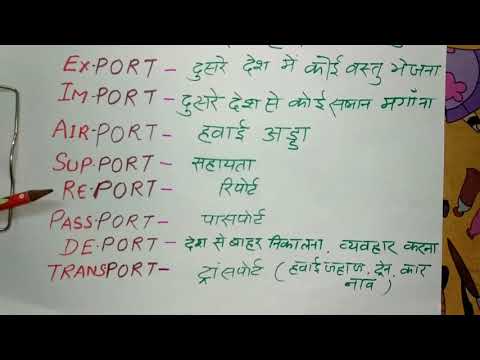 EX-PORT – दुसरे देश में कोई वस्तु भेजना
IM-PORT – दुसरे देश से कोई समान मगाँना
AIR-PORT – हवाई अड्डा
SUP-PORT – सहायता
RE-PORT रिपोर्ट
PASS-PORT – पासपोर्ट
DE-PORT – देश से बाहर निकालना, व्यवहार करना
TRANSPORT – ट्रांसपोर्ट (हवाई जहाज, ट्रेन, कार
नाव)